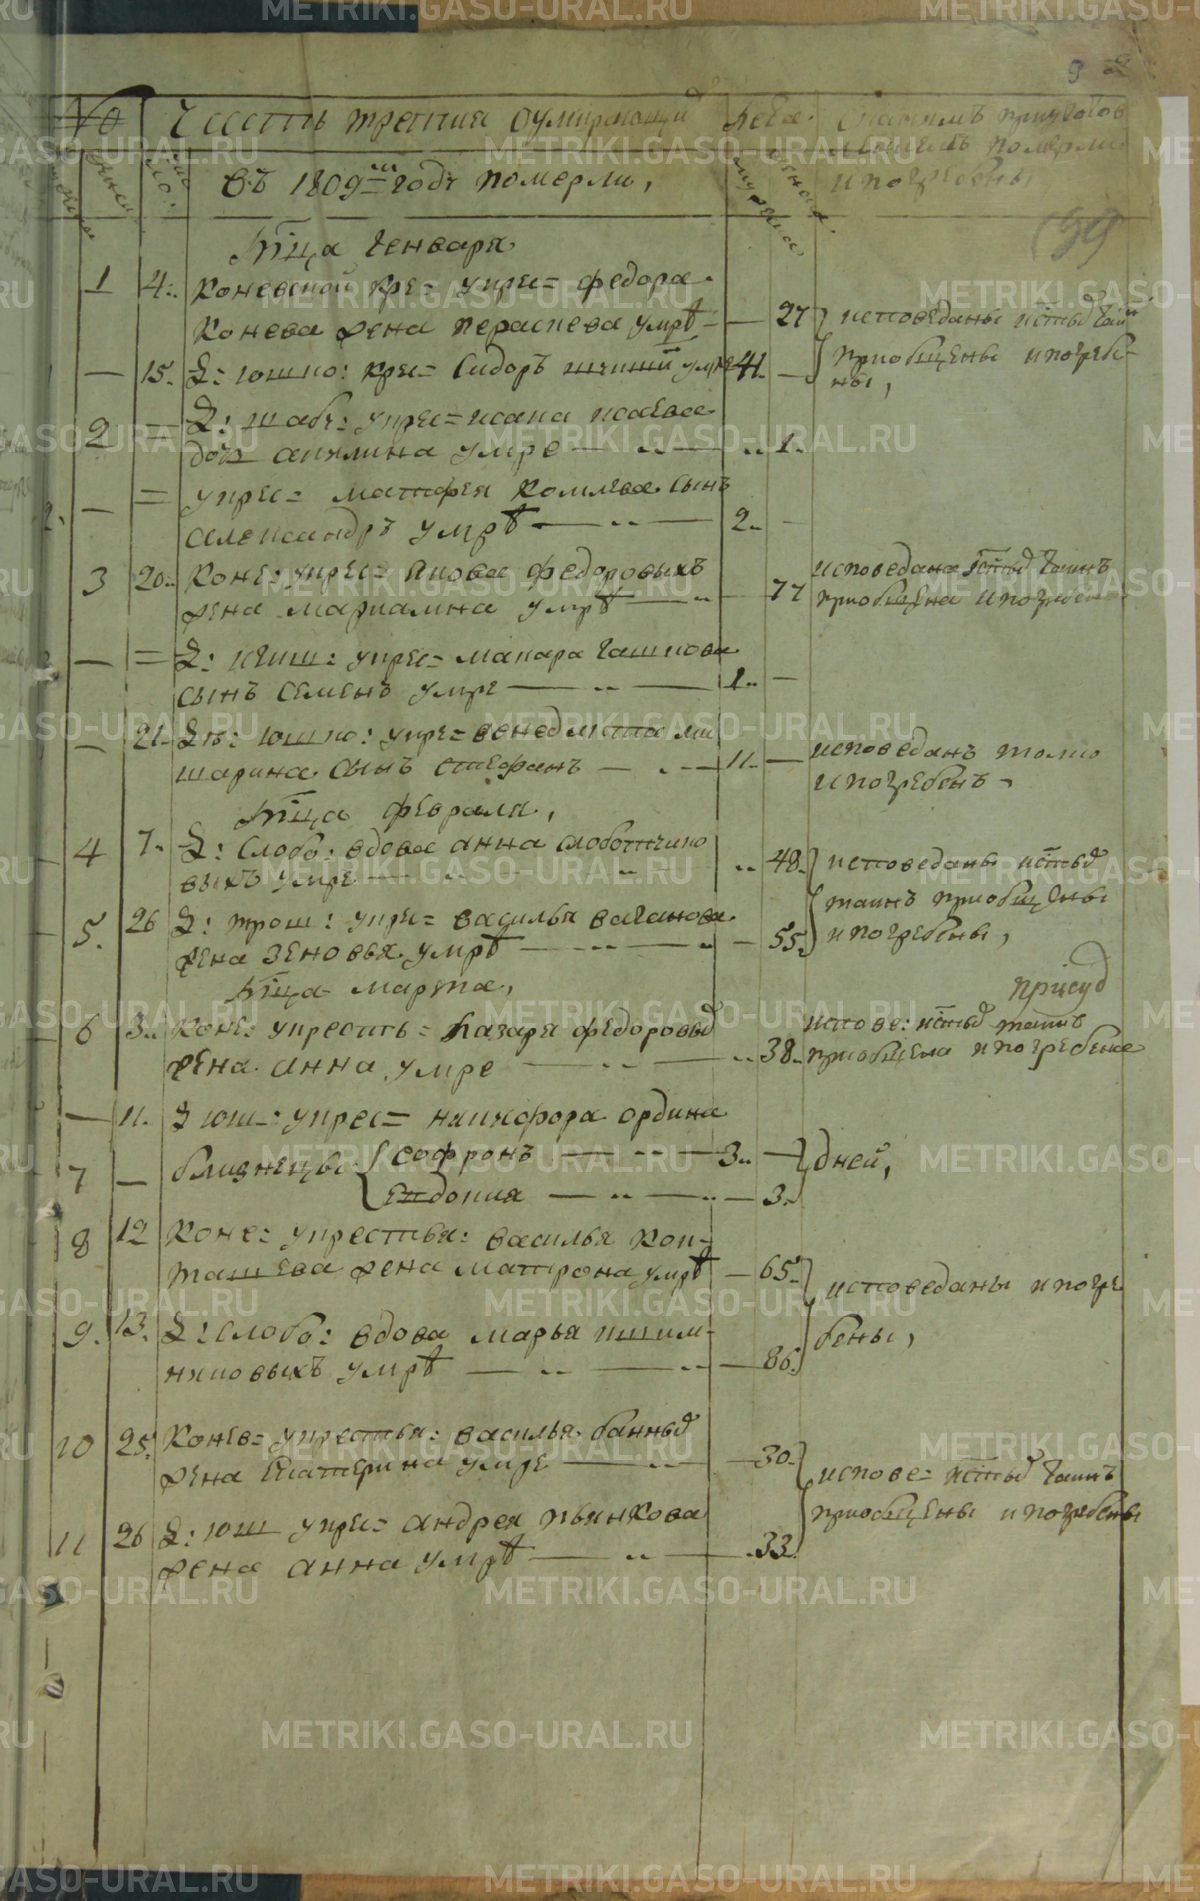 9
№ Часть третия о умирающихъ Лета С какимъ приуготов
лениемъ померли
и погребены
женска мужеска женска
въ 1809м годе померли,
Мца Генваря
1 4. Коневской кре= у крес= федора
Конева жена параскева умре — 27 исповеданы и стыхъ таинъ
приобщены и погребе-
ны,
— 15. Д: юшко: крес= Сидоръ умре 41. —
2 = Д: шабу: у крес= исака исаева
дочь акилина умре — .. — .. 1.
— = у крес= матфея комлева сынъ
александръ умре — .. — 2. —
3 20.. Коне: у крес= якова федоровыхъ
жена марианна умре — .. — 77
исповедана стыхъ таинъ
приобщена и погребен
— = Д: у крес= макара гашкова
сынъ семенъ умре — .. — 1.. —
— 21. Дв: юшко: у кре= венедикта ми
шарина сынъ стефанъ — . — 11. —
исповеданъ токмо
и погребенъ
Мца февраля,
4 7. Д: Слобо: вдова анна слоботчико
выхъ умре — .. — .. 48. исповеданы и стыхъ
таинъ приобщены
и погребены,
5. 26 Д: трош: у крес= василья ваганова
жена зеновья умре — .. — .. — 55.
Мца марта,
6 3.. Коне: у крестья= Лазаря федоровыхъ
жена анна умре — .. — .. 38.
испове: и стыхъ таинъ
приобщена и погребена
— 11. Д юш: у крес= никифора ордина
7 — близнецы софронъ — .. — 3.. — дней,
Евдокия — .. — .. — 3.
8 12 Коне: у крестья: василья кок-
ташева жена матрона умре — 65.
исповеданы и погре
бены,
9. 13. Д: Слобо: вдова марья ишим-
никовыхъ умре — .. — .. — 86.
10 25. Конев= у крестья: василья банныхъ
жена екатерина умре — .. — 30.
испове= и стыхъ таинъ
приобщены и погребены
11 26 Д: юш у крес= андрея пьянкова
жена анна умре — .. — .33.
METRIKI.GASO-URAL.RU